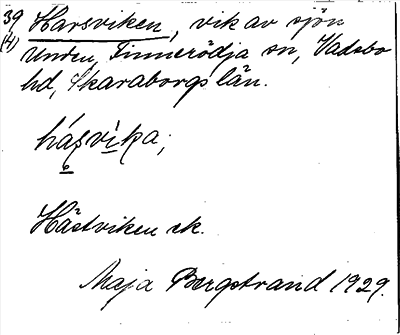 39 Harsviken, vik av sjön
(4) Unden, Finnerödja sn, Vadsbo
hd, Skaraborgs län.
hásvìka;
Hästviken ek.
Maja Bergstrand 1929.